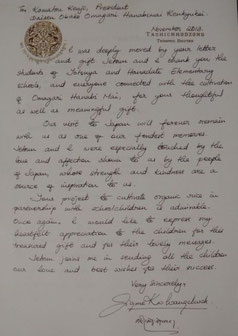 To Komatsu Kenji, President
November 2012
THIMPHU, BHUTAN
I was deeply moved by your letter
and gift. Jetsun and I thank you the
students of and Elementary
schools, and everyone connected with the cultivation
of Omagari for your thoughtful
as well as meaningful gift.
Our visit to Japan will forever remain
with us as one of our fondest memories.
Jetsun and I were especially touched by the
love and affection shown to us by the people
of Japan, whose strength and kindness are a
source of inspiration to us.
Your project to cultivate organic rice in
partnership with schoolchildren is admirable.
Once again, I would like to express my
heartfelt appreciation to the children for this
treasured gift and for their lovely messages.
Jetsun joins me in sending all the children
our love and best wishes for their success.
Very Sincerely,